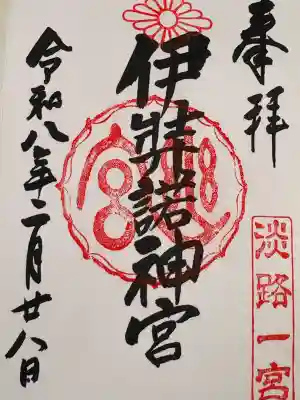 奉拝
淡路一宮
伊弉諾神宮
令和八年二月廿八日